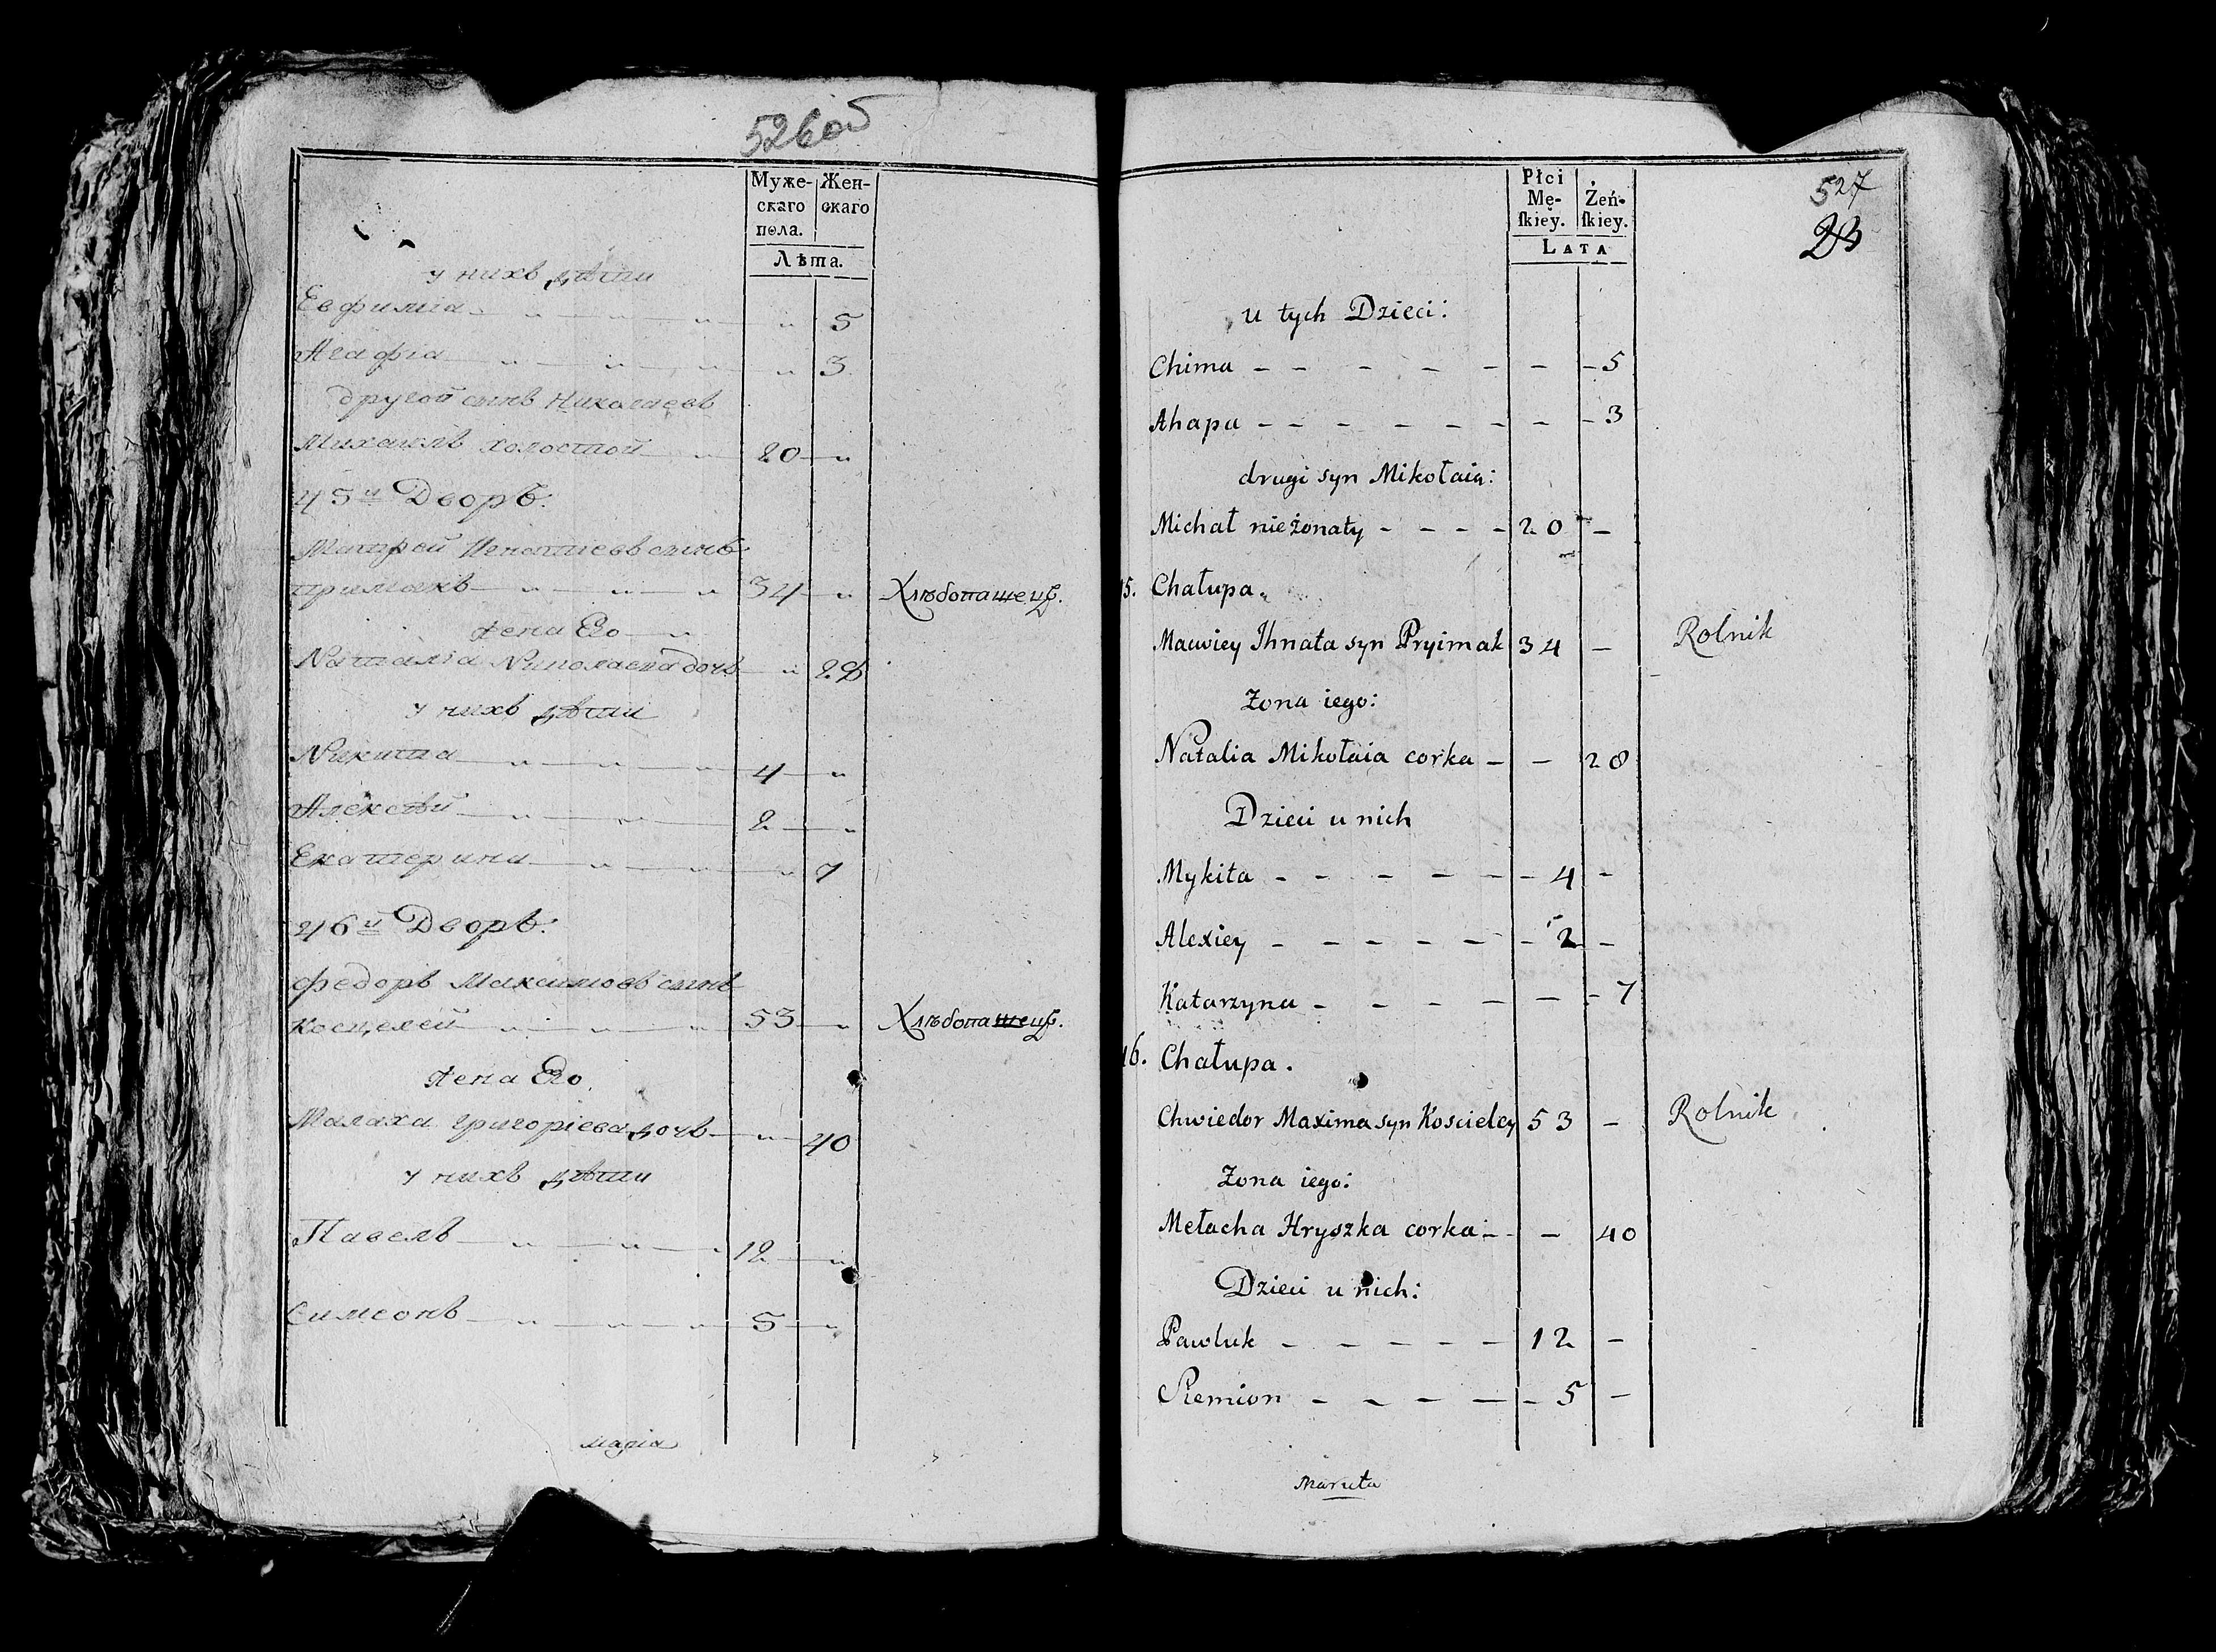 526 об
Муже-
скаго
пола.
Жен-
скаго
Лѣта.
у нихъ дѣти
Евфиміа 5
Агафіа 3
другой сынъ Николаевъ
Михаилъ холостой 20
45й Дворъ.
сынъ
примакъ 34 Хлѣбопашецъ.
жена Его
Наталіа Николаева дочь 28
у нихъ дѣти
Никита 4
Алексѣй 2
Екатерина 7
46й Дворъ.
Федоръ Максимовъ сынъ
Косцелей 53 Хлѣбопашецъ.
жена Его
Малаха Григоріева дочь 40
у нихъ дѣти
Павелъ 12
Симеонъ 5
Маріа
Płci
Mę-
ſkiey.
Żeń-
ſkiey.
LATA
527
23
u tych Dzieci:
Chima - - - - - - - 5
Ahapa - - - - - - - - 3
drugi syn Mikołaia:
Michał nieżonaty - - - - 20 -
5. Chałupa.
Ihnata syn Pryimak 34 - Rolnik
Żona iego:
Natalia Mikołaia corka - - 28
Dzieci u nich
Mykita - - - - - - 4 -
Alexiey - - - - - - 2 -
Katarzyna - - - - - - 7
16. Chałupa.
Chwiedor Maxima syn Kościeley 53 - Rolnik
Żona iego:
Mełacha Hryszka corka - - - 40
Dzieci u nich:
Pawluk - - - - - 12 -
Siemion - - - - - 5 -
Maruta